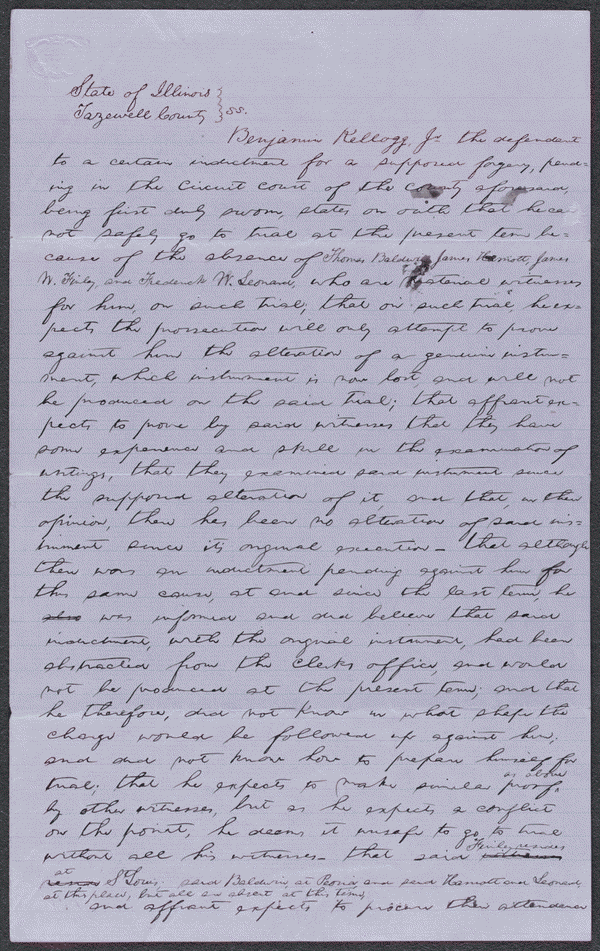 State of Illinois }
Tazewell County } ss.
Benjamin Kellogg, Jr. the defendant
to a certain indictment for a supposed forgery, pend=
ing in the Circuit court of the county aforesaid,
being first duly sworn, states on oath that he can
not safely go to trial at the present term be=
cause of the absence of Thomas Baldwin, James Harriott, James
W. Finley, and Frederick W. Leonard, who are material witnesses
for him, on such trial; that on such trial, he ex=
pects, the prossecution will only attempt to prove
against him the alteration of a genuine instru=
ment, which instrument is now lost, and will not
be produced on the said trial; that affiant ex=
pects to prove by said witnesses that they have
some experience and skill in the examination of
writings, that they examined said instrument since
the supposed alteration of it, and that, in their
opinion, there has been no alteration of said ins=
trument since its original execution— that although
there was an indictment pending against him for
this same cause, at and since the last term, he
also was informed and did believe that said
indictment, with the original instrument, had been
abstracted from the Clerks office, and would
not be produced at the present term; and that
he therefore, did not know in what shape the
charge would be followed up against him;
and did not know how to prepare himself for
trial; that he expects to make similar proof, as above
by other witnesses, but as he expects a conflict
on the point, he deems it unsafe to go to trial
without all his witnesses— that said Finley resides
at St Louis: said Baldwin at Peoria, and said Harriott and Leonard,
at this place, but all are absent at this time;
and affiant expects to procure their attendance